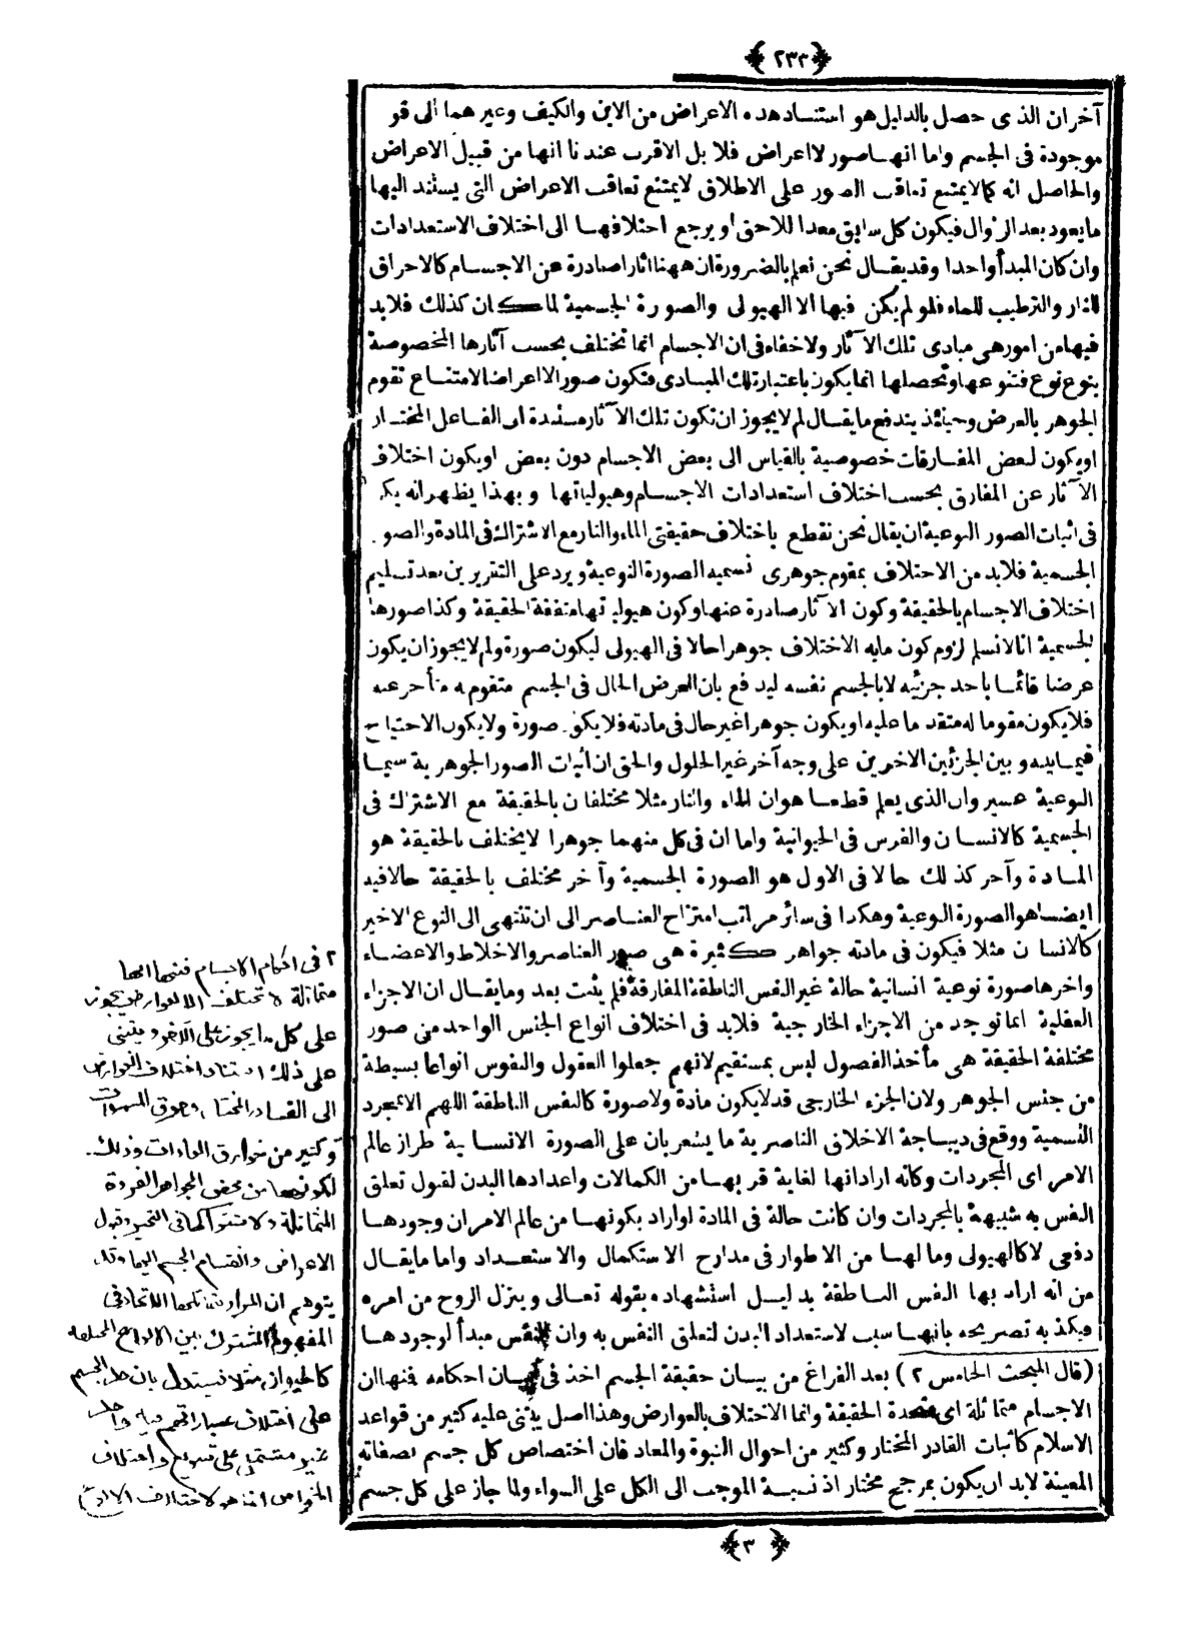 ﴿ ٢٣٣ ﴾
آخر ان الذى حصل بالدليل هو استناد هذه الاعراض من الاين والكيف وغيرهما الى قو
موجودة فى الجسم واما انها صور لا اعراض فلا بل الاقرب عندنا انها من قبيل الاعراض
والحاصل انه كما لا يمتنع تعاقب الصور على الاطلاق لا يمتنع تعاقب الاعراض التى يستند اليها
ما يعود بعد الزوال فيكون كل سابق معدا للاحق او يرجع اختلافها الى اختلاف الاستعدادات
وان كان المبدأ واحدا وقد يقال نحن نعلم بالضرورة ان ههنا اثارا صادرة عن الاجسام كالاحراق
للنار والترطيب للماء فلو لم يكن فيها الا الهيولى والصورة الجسمية لما كان كذلك فلابد
فيها من امور هى مبادى تلك الآثار ولا خفاء فى ان الاجسام انما تختلف بحسب آثارها المخصوصة
بنوع نوع فتنوعها وتحصلها انما يكون باعتبار تلك المبادى فتكون صورا لا اعراضا لامتناع تقوم
الجوهر بالعرض وحينئذ يندفع ما يقال لم لا يجوز ان تكون تلك الآثار مستندة الى الفاعل المختار
او يكون لبعض المفارقات خصوصية بالقياس الى بعض الاجسام دون بعض او يكون اختلاف
الآثار عن المفارق بحسب اختلاف استعدادات الاجسام وهيولياتها وبهذا يظهر انه يك
فى اثبات الصور النوعية ان يقال نحن نقطع باختلاف حقيقتى الماء والنار مع الاشتراك فى المادة والصو
الجسمية فلابد من الاختلاف بمقوم جوهرى نسميه الصورة النوعية ويرد على التقريرين بعد تسليم
اختلاف الاجسام بالحقيقة وكون الآثار صادرة عنها وكون هيولياتها متفقة الحقيقة وكذا صورها
الجسمية انا لا نسلم لزوم كون ما به الاختلاف جوهرا حالا فى الهيولى ليكون صورة ولم لا يجوز ان يكون
عرضا قائما باحد جزئيه لا بالجسم نفسه ليدفع بان العرض الحال فى الجسم متقوم به متأخر عنه
فلا يكون مقوما له متقدما عليه او يكون جوهرا غير حال فى مادته فلا يكون صورة ولا يكون الاحتياج
فيما بينه وبين الجزئين الاخرين على وجه آخر غير الحلول والحق ان اثبات الصور الجوهرية سيما
النوعية عسير وان الذى يعلم قطعا هو ان الماء والنار مثلا مختلفان بالحقيقة مع الاشتراك فى
الجسمية كالانسان والفرس فى الحيوانية واما ان فى كل منهما جوهرا لا يختلف بالحقيقة هو
المادة وآخر كذلك حالا فى الاول هو الصورة الجسمية وآخر مختلف بالحقيقة حالا فيه
ايضا هو الصورة النوعية وهكذا فى سائر مراتب امتزاج العناصر الى ان تنتهى الى النوع الاخير
كالانسان مثلا فيكون فى مادته جواهر كثيرة هى صور العناصر والاخلاط والاعضاء
واخرها صورة نوعية انسانية حالة غير النفس الناطقة المفارقة فلم يثبت بعد وما يقال ان الاجزاء
العقلية انما توجد من الاجزاء الخارجية فلابد فى اختلاف انواع الجنس الواحد من صور
مختلفة الحقيقة هى مأخذ الفصول ليس بمستقيم لانهم جعلوا العقول والنفوس انواعا بسيطة
من جنس الجوهر ولان الجزء الخارجى قد لا يكون مادة ولا صورة كالنفس الناطقة اللهم الا بمجرد
التسمية ووقع فى ديباجة الاخلاق الناصرية ما يشعر بان على الصورة الانسانية طراز عالم
الامر اى المجردات وكأنه اراد انها لغاية قربها من الكمالات واعدادها البدن لقبول تعلق
النفس به شبيهة بالمجردات وان كانت حالة فى المادة او اراد بكونها من عالم الامر ان وجودها
دفعى لا كالهيولى وما لها من الاطوار فى مدارج الاستكمال والاستعداد واما ما يقال
من انه اراد بها النفس الناطقة بدليل استشهاده بقوله تعالى وينزل الروح من امره
فيكذبه تصريحه بانها سبب لاستعداد البدن لتعلق النفس به وان النفس مبدأ لوجودها
(قال المبحث الخامس ٢) بعد الفراغ من بيان حقيقة الجسم اخذ فى بيان احكامه فمنها ان
الاجسام متماثلة اى متحدة الحقيقة وانما الاختلاف بالعوارض وهذا اصل يبتنى عليه كثير من قواعد
الاسلام كاثبات القادر المختار وكثير من احوال النبوة والمعاد فان اختصاص كل جسم بصفاته
المعينة لابد ان يكون بمرجح مختار اذ نسبة الموجب الى الكل على السواء ولما جاز على كل جسم
٢ فى احكام الاجسام فمنها انها
متماثلة لا تختلف الا بالعوارض يجوز
على كل ما يجوز على الآخر ويبتنى
على ذلك استناد اختلاف العوارض
الى القادر المختار وخرق السموات
وكثير من خوارق العادات وذلك
لكونها من محض الجواهر الفردة
المتماثلة ولاشتراكها فى التحيز وقبول
الاعراض وانقسام الجسم اليها وقد
يتوهم ان المراد بتماثلها الاتحاد فى
المفهوم المشترك بين الانواع المختلفة
كالحيوان مثلا فيستدل بان حد الجسم
على اختلاف عباراتهم فيه واحد
غير مشتمل على تنويع واختلاف
الخواص انما هو لاختلاف الانواع)
﴿ ٣ ﴾